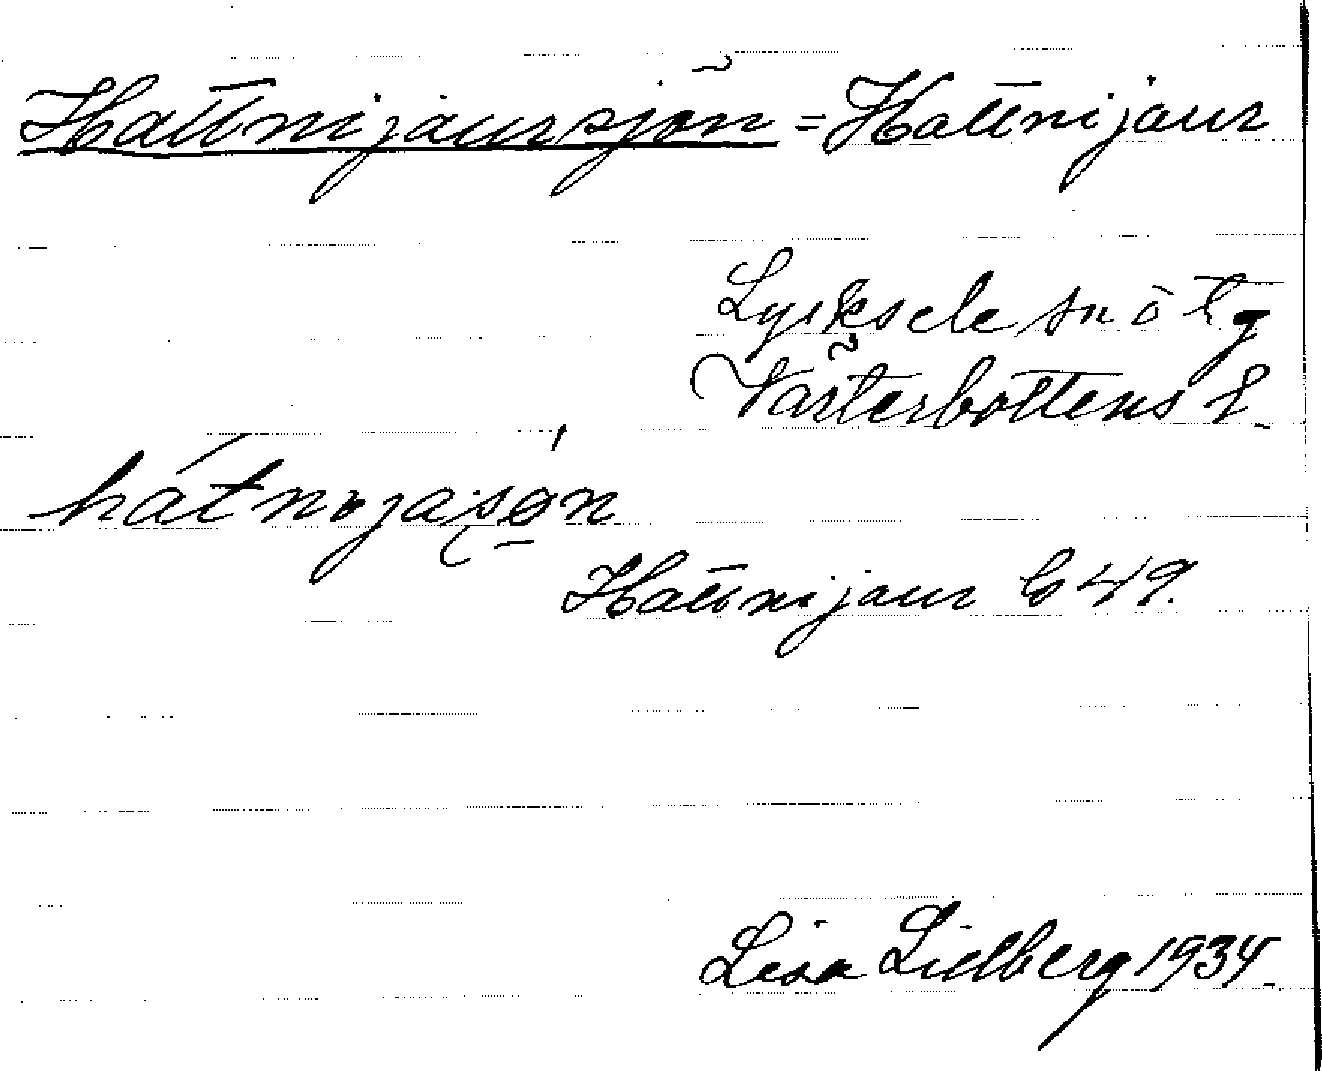 Hattnijaursjön = Hattnijaur
Lycksele sn ö tg
Västerbottens l.
Hattnijaur G 49.
Lisa Lidberg 1934.